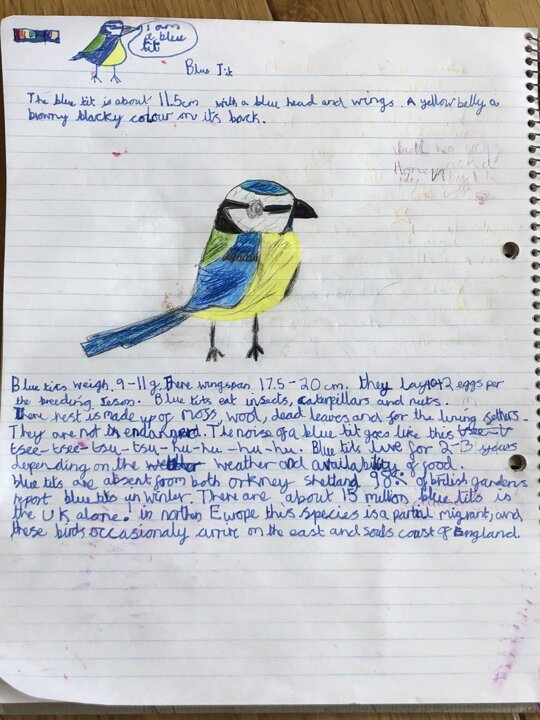 I am
a blue
tit
Blue Tit
The blue tit is about 11.5cm with a blue head and wings. A yellow belly a
browny blacky colour on its back.
Blue tits weigh 9-11g. There wingspan 17.5-20 cm. they lay 12 eggs per
the breeding seson. Blue tits eat insects, caterpillars and nuts.
There nest is made up of moss, wool, dead leaves and for the lining fethers.
They are not in endangerd. The noise of a blue tit goes like this
tsee-tsee-tsu-tsu-hu-hu-hu-hu. Blue tits live for 2-3 years
depending on the weather and availability of food.
blue tits are absent from both orkney shetland 98% of british gardens
report blue tits in winter. There are about 15 million blue tits is
the UK alone! in northen Ewope this species is a partial migrant, and
these birds occasionaly arrive on the east and south coast of England.